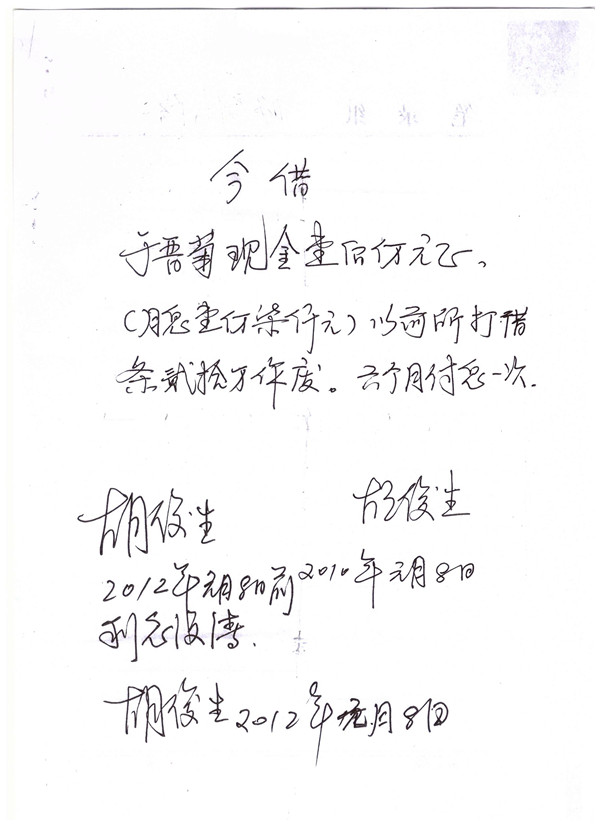 今借
于晋菊现金壹佰万元正、
(月息壹万柒仟元)以前所打借
条贰拾万作废。六个月付息一次.
胡俊生 胡俊生
2012年元月8日前 2010年元月8日
利息没清.
胡俊生 2012年元月8日
笔录纸